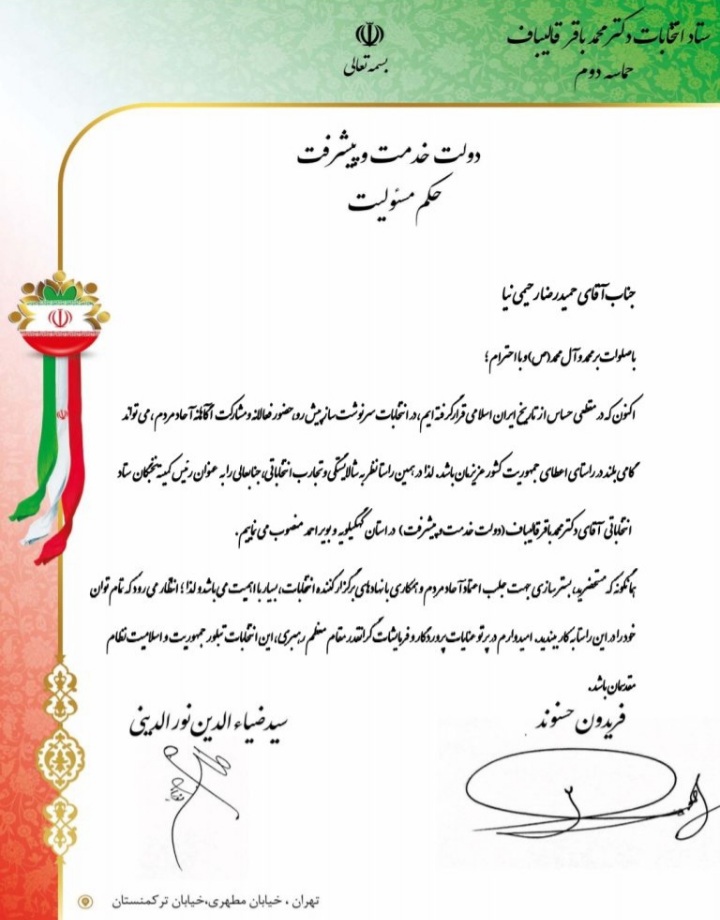 ستاد انتخابات دکتر محمد باقر قالیباف
حماسه دوم
بسمه تعالی
دولت خدمت و پیشرفت
حکم مسئولیت
جناب آقای حمیدرضا رحیمی نیا
با صلوات بر محمد و آل محمد(ص) و با احترام؛
اکنون که در مقطعی حساس از تاریخ ایران اسلامی قرار گرفته ایم، در انتخابات سرنوشت ساز پیش رو، حضور فعالانه و مشارکت آگاهانه آحاد مردم، می تواند
گامی بلند در راستای اعطای جمهوریت کشور عزیزمان باشد. لذا در همین راستا نظر به شایستگی و تجارب انتخاباتی، جنابعالی را به عنوان رئیس کمیته نخبگان ستاد
انتخاباتی آقای دکتر محمد باقر قالیباف (دولت خدمت و پیشرفت) در استان کهگیلویه و بویراحمد منصوب می نمایم.
همانگونه که مستحضرید، بستر سازی جهت جلب اعتماد آحاد مردم و همکاری با نهادهای برگزار کننده انتخابات، بسیار با اهمیت می باشد و لذا؛ انتظار می رود که تمام توان
خود را در این راستا به کار ببندید. امیدوارم در پرتو عنایات پروردگار و فرمایشات گرانقدر مقام معظم رهبری، این انتخابات تبلور جمهوریت و اسلامیت نظام
مقدسمان باشد.
فریدون حسنوند
سید ضیاء الدین نور الدینی
تهران ، خیابان مطهری،خیابان ترکمنستان